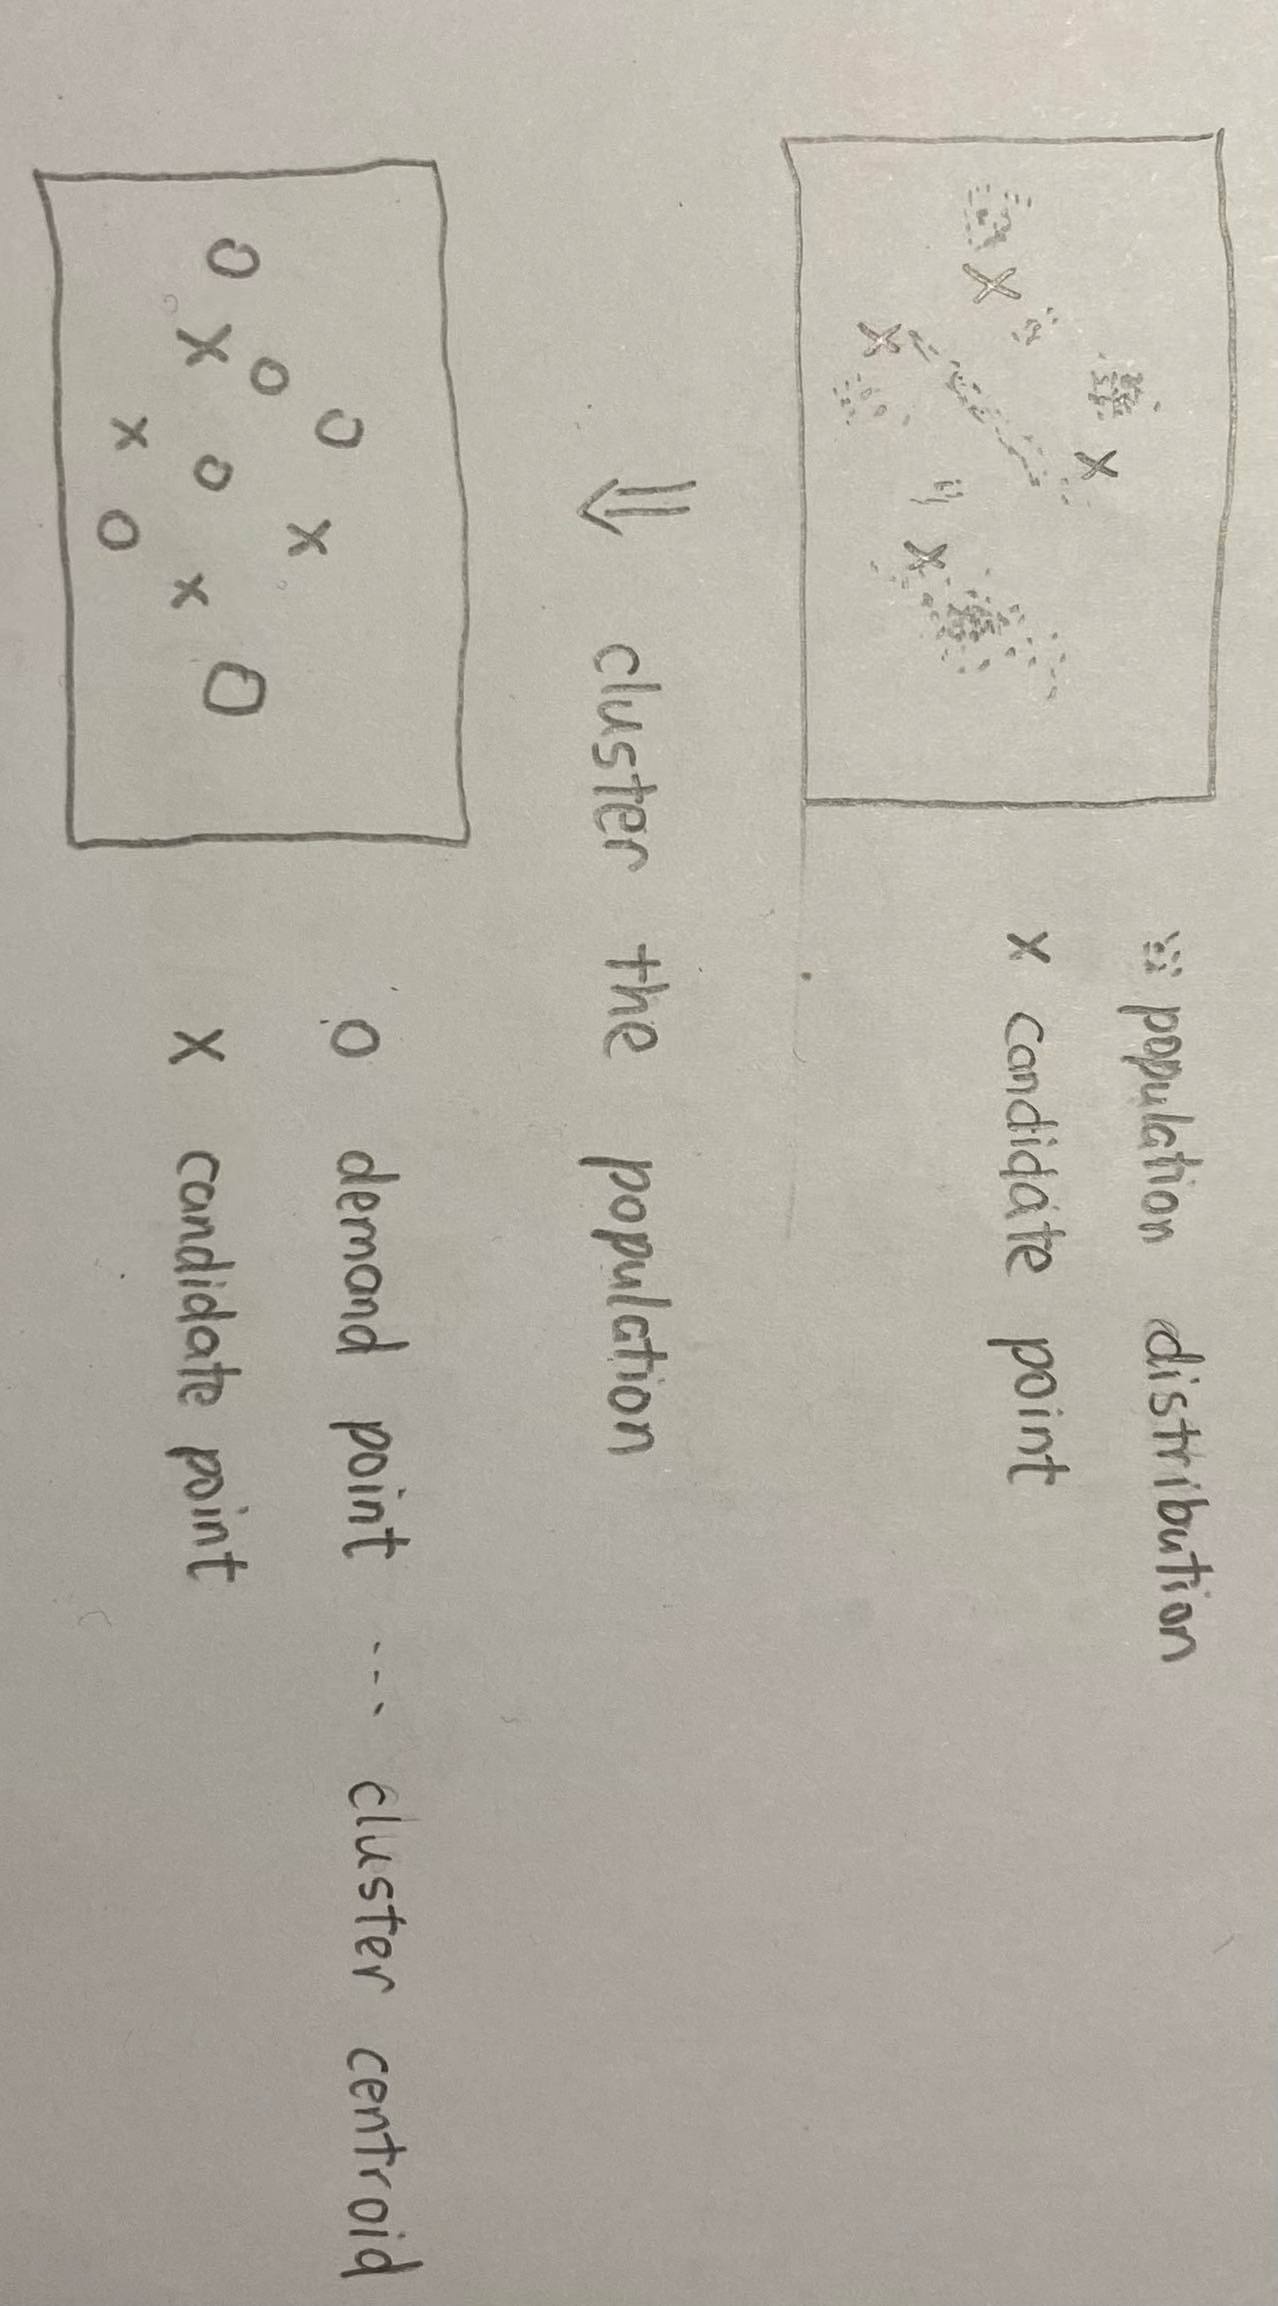 population distribution
x candidate point
cluster the population
o demand point ... cluster centroid
x candidate point